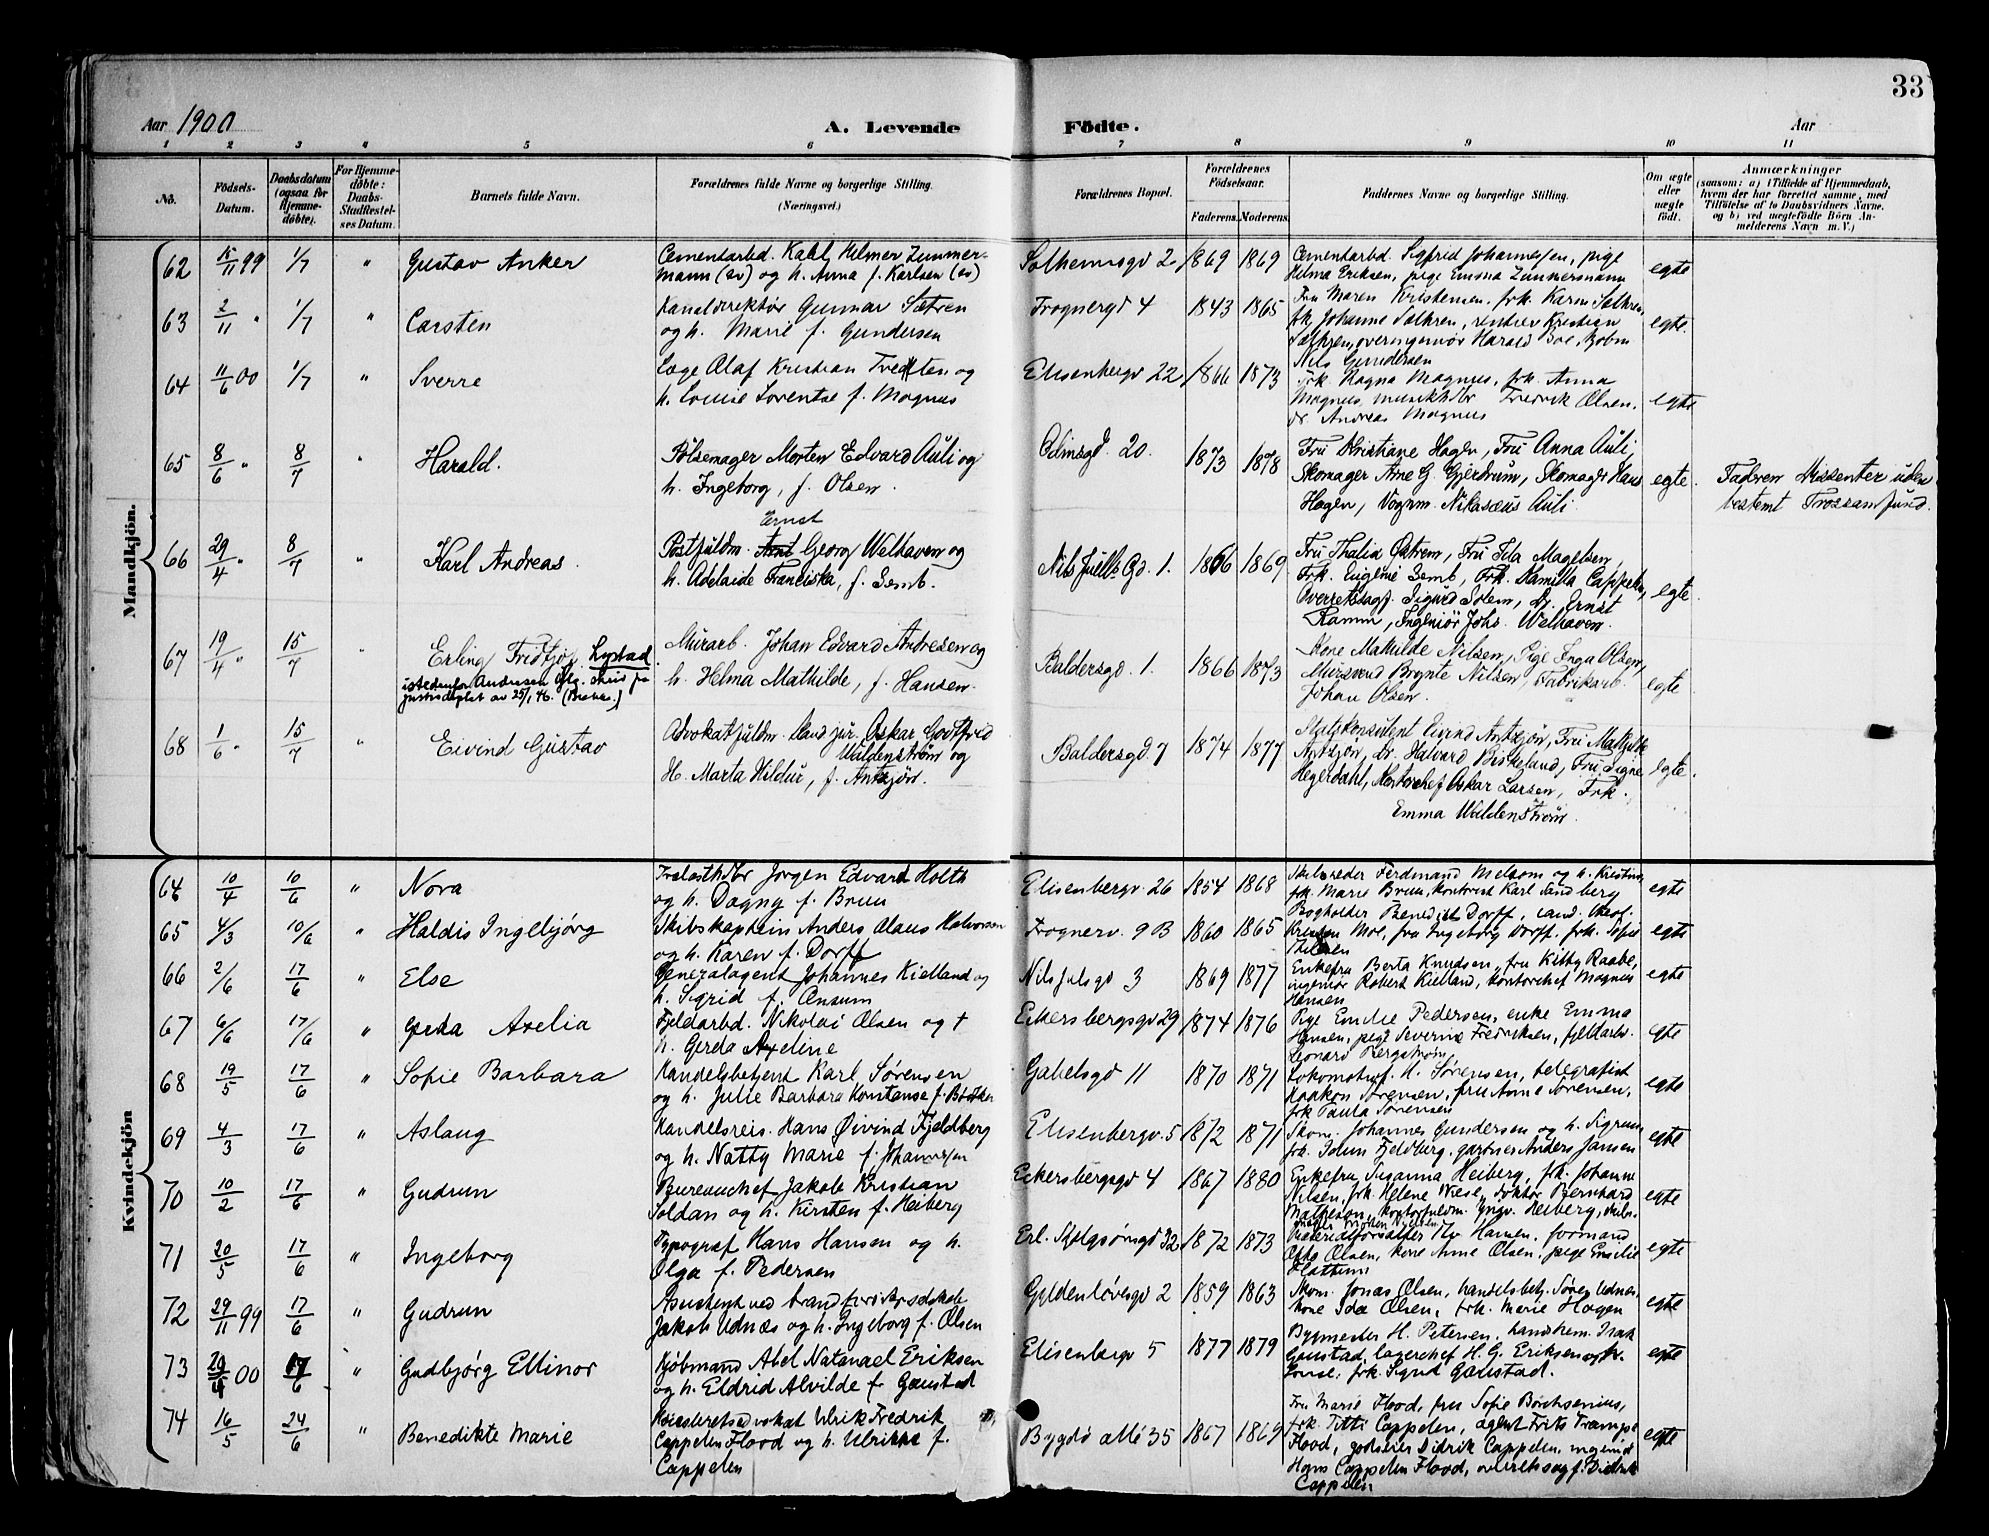 33
Aar 1900
A. Levende Födte.
Aar
1 2 3 4 5 6 7 8 9 10 11
No.
Födsels-Datum.
Daabsdatum (ogsaa for Hjemme-döbte).
For Hjemme-döbte: Daabs-Stadfæstelses Datum.
Barnets fulde Navn.
Forældrenes fulde Navne og borgerlige Stilling. (Næringsvei.)
Forældrenes Bopæl.
Forældrenes Födselsaar.
Faderens. Moderens.
Faddernes Navne og borgerlige Stilling.
Om ægte eller uægte födt.
Anmærkninger
(saasom: a) i Tilfælde af Hjemmedaab, hvem der har forrettet samme, med Tilföielse af to Daabsvidners Navne, og b) ved uegtefödte Börn Anmelderens Navn m. V.)
Mandkjön.
62 15/11 99 1/7 " Gustav Anker
Cementarbd. Karl Helmer Zimmermann (sv) og h. Anna f. Karlsen (sv)
Solheimsgd 2 1869 1869
Cementarbd. Sigfrid Johannessen, pige Helma Eriksen, pige Emma Zimmermann
egte
63 2/11 " 1/7 " Carsten
Kanaldirektør Gunnar Sætren og h. Marie f. Gundersen
Frognergd 4 1843 1865
Fru Maren Kristensen, frk. Karen Sætren, frk Johanne Sætren, rentier Kristian Sætren, overingeniør Harald Boe, Nils Gundersen
egte.
64 11/6 00 1/7 " Sverre
Læge Olaf Kristian Tvedten og h. Louise Lorentse f. Magnus
Elisenbergv 22 1866 1873
Frk. Ragna Magnus, frk. Anna Magnus, musikhdlr Fredrik Olsen, dr Andreas Magnus
egte
65 8/6 " 8/7 " Harald.
Pølsemager Morten Edvard Auli og h. Ingeborg, f. Olsen.
Odinsgd. 20. 1873 1878
Fru Kristiane Hagen, Fru Anna Auli, Skomager Arne G. Gjerdrum, Skomagr Hans Hagen, Vognm. Nikasæus Auli.
egte.
Fadren dissenter uden bestemt Trossamfund.
66 29/4 " 8/7 " Karl Andreas.
Postfuldm. Ernst Georg Welhaven og h. Adelaide Franciska, f. Semb.
Nils Juells Gd. 1. 1866 1869
Fru Thalia Østrem, Fru Ida Magelsen, Frk. Eugenie Semb, Frk. Kamilla Cappelen, Overretssagf. Sigurd Solem, Dr. Ernst Ramm, Ingeniør Johs. Welhaven.
egte.
67 19/4 " 15/7 " Erling Fridtjof. Lystad.
istedenfor Andresen iflg. skriv fra justisdeptet av 25/1 46.
Murarb. Johan Edvard Andresen og h. Helma Mathilde, f. Hansen.
Baldersgd. 1. 1866 1873
Kone Mathilde Nilsen, Pige Inga Olsen, Mursvend Brynte Nilsen, Fabrikarb. Johan Olsen.
egte.
68 1/6 " 15/7 " Eivind Gustav
Advokatfuldm. Cand jur. Oskar Gottfrid Waldenstrøm og H. Marta Hildur, f. Antzjøn.
Baldersgd 7 1874 1877
Statskonsulent Eivind Antzjøn, Fru Mathilde Antzjøn, Dr. Halvard Birkeland, Fru Signe Hegerdahl, Kontorchef Oskar Larsen, Frk. Emma Waldenstrøm.
egte.
Kvindekjön
64 10/4 10/6 " Nora
Trælasthdlr Jørgen Edvard Holth og h. Dagny f. Bruu
Elisenbergv. 26 1854 1868
Skibsreder Ferdinand Melsom og h. Kristine, frk. Marie Bruu, kontorist Karl Sandberg
egte
65 4/3 10/6 " Haldis Ingebjørg
Skibskaptein Anders Olaus Halvorsen og h. Karen f. Dorff
Frognerv. 9 B 1860 1865
Bogholder Benedict Dorff, cand. theol. Kristen Moe, fru Ingeborg Dorff, frk. Sofie
egte
66 2/6 17/6 " Else
Generalagent Johannes Kielland og h. Sigrid f. Ansum
Nils Julsgd 3 1869 1877
Enkefru Berta Knudsen, fru Kitty Raabe, ingeniør Robert Kielland, kontorchef Magnus Hansen
egte
67 6/6 17/6 " Gerda Axelia
Fjeldarbd. Nikolai Olsen og + h. Gerda Axeline
Eckersbergsgd 29 1874 1876
Pige Emilie Pedersen, enke Emma Hansen, pige Severine Fredriksen, fjeldarb. Leonard Bergstrøm
egte
68 19/5 17/6 " Sofie Barbara
Handelsbetjent Karl Sørensen og h. Julie Barbara Konstanse f. Bødtker
Gabelsgd 11 1870 1871
Lokomotivf. H. Sørensen, telegrafist Haakon Sørensen, fru Anne Sørensen, frk Paula Sørensen
egte
69 4/3 17/6 " Aslaug
Handelsreis. Hans Øivind Fjeldberg og h. Natty Marie f. Johannesen
Elisenbergv. 5 1872 1871
Skom. Johannes Gundersen og h. Sigrun, frk. Idun Fjeldberg, gartner Anders Jansen
egte
70 10/2 17/6 " Gudrun
Bureauchef Jakob Kristian Soldan og h. Kirsten f. Heiberg
Eckersbergsgd 4 1867 1880
Enkefru Susanna Heiberg, frk. Johanne Nilsen, frk. Helene Wiese, doktor Bernhard Matheson, kontorfuldm. Yngv. Heiberg, skibs-
egte
71 20/5 17/6 " Ingeborg
Typograf Hans Hansen og h. Olga f. Pedersen
Erl. Skjalgsønsgd 32 1872 1873
Materialforvalter Hansen, formand Otto Olsen, kone Anne Olsen, pige Emilie Flattum
egte
72 29/11 99 17/6 " Gudrun
Assistent ved brandforsikrselskab Jakob Udnæs og h. Ingeborg f. Olsen
Gyldenløvesgd 2 1859 1863
Skom. Jonas Olsen, handelsbetj. Søren Udnes, kone Ida Olsen, frk. Marie Hagen
egte
73 20/4 00 17/6 " Gudbjørg Ellinor
Kjøbmand Abel Natanael Eriksen og h. Eldrid Alvilde f. Gaustad
Elisenbergv 5 1877 1879
Bygmester H. Petersen, handrem. Isak Gaustad, lagerchef H. G. Eriksen og h. frk. Sigrid Gaustad.
egte
74 16/5 24/6 " Benedikte Marie
Høiesteretsadvokat Ulrik Fredrik Cappelen Flood og h. Ulrikke f. Cappelen
Bygdø allé 35 1867 1869
Fru Marie Flood, fru Sofie Borchsenius, frk. Titti Cappelen, agent Frits Trampe Flood, godseier Didrik Cappelen, ingeniør Hans Cappelen Flood, overretssagf. Didrik Cappelen
egte